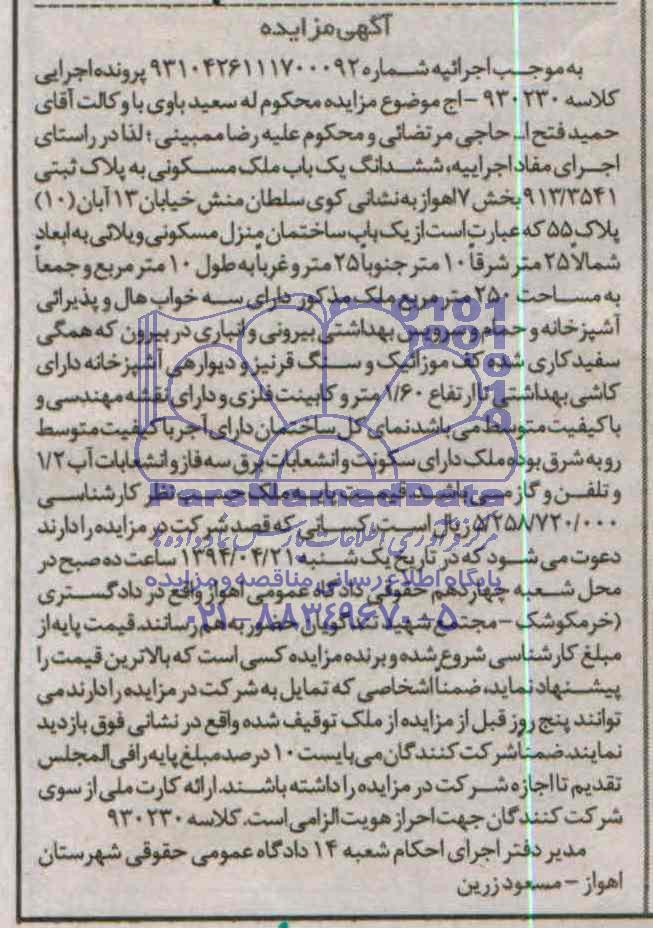 آگهی مزایده
به موجب اجرائیه شماره ۹۳۱۰۴۲۶۱۱۱۷۰۰۰۹۲ پرونده اجرایی
کلاسه ۹۳۰۲۳۰ - اج موضوع مزایده محکوم له سعید باوی با وکالت آقای
حمید فتح اله حاجی مرتضائی و محکوم علیه رضا ممبینی؛ لذا در راستای
اجرای مفاد اجراییه، ششدانگ یک باب ملک مسکونی به پلاک ثبتی
۹۱۳/۳۵۴۱ بخش ۷ اهواز به نشانی کوی سلطان منش خیابان ۱۳ آبان (۱۰)
پلاک ۵۵ که عبارت است از یک باب ساختمان منزل مسکونی ویلائی به ابعاد
شمالاً ۲۵ متر شرقاً ۱۰ متر جنوبا ۲۵ متر و غرباً به طول ۱۰ متر مربع و جمعاً
به مساحت ۲۵۰ متر مربع ملک مذکور دارای سه خواب هال و پذیرائی
آشپزخانه و حمام و سرویس بهداشتی بیرونی و انباری در بیرون که همگی
سفید کاری شده کف موزائیک و سنگ قرنیز و دیوارهی آشپزخانه دارای
کاشی بهداشتی تا ارتفاع ۱/۶۰ متر و کابینت فلزی و دارای نقشه مهندسی و
با کیفیت متوسط می باشد نمای کل ساختمان دارای آجر با کیفیت متوسط
رو به شرق بوده ملک دارای سکونت و انشعابات برق سه فاز و انشعابات آب ۱/۲
و تلفن و گاز می باشد. قیمت پایه ملک حسب نظر کارشناسی
۵/۲۵۸/۷۲۰/۰۰۰ ریال است. کسانی که قصد شرکت در مزایده را دارند
دعوت می شود که در تاریخ یک شنبه ۱۳۹۴/۰۴/۲۱ ساعت ده صبح در
محل شعبه چهاردهم حقوقی دادگاه عمومی اهواز واقع در دادگستری
(خرمکوشک - مجتمع شهید تندگویان) حضور به هم رسانند. قیمت پایه از
مبلغ کارشناسی شروع شده و برنده مزایده کسی است که بالاترین قیمت را
پیشنهاد نماید، ضمناً اشخاصی که تمایل به شرکت در مزایده را دارند می
توانند پنج روز قبل از مزایده از ملک توقیف شده واقع در نشانی فوق بازدید
نمایند. ضمنا شرکت کنندگان می بایست ۱۰ درصد مبلغ پایه را فی المجلس
تقدیم تا اجازه شرکت در مزایده را داشته باشند. ارائه کارت ملی از سوی
شرکت کنندگان جهت احراز هویت الزامی است. کلاسه ۹۳۰۲۳۰
مدیر دفتر اجرای احکام شعبه ۱۴ دادگاه عمومی حقوقی شهرستان
اهواز - مسعود زرین
ParsNamadData
پایگاه اطلاع رسانی مناقصه و مزایده
۰۲۱-۸۸۳۴۹۶۷۰-۵